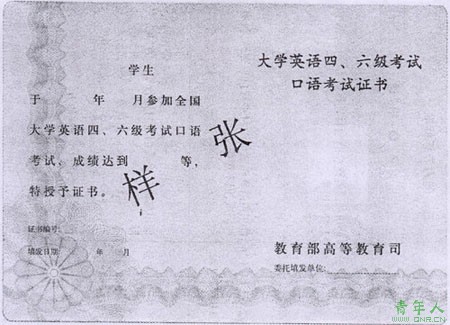 学生
于 年 月参加全国
大学英语四、六级考试口语
考试、成绩达到 等,
特授予证书。
证书编号:
填发日期: 年 月
大学英语四、六级考试
口语考试证书
样张
教育部高等教育司
委托填发单位:
青年人
WWW.QNR.CN